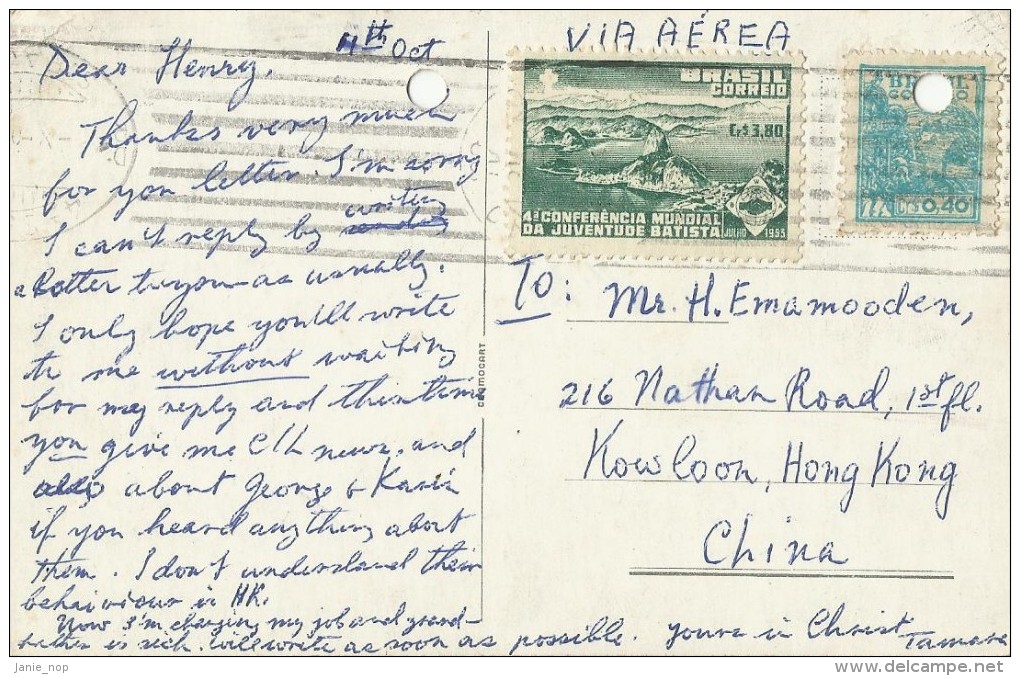 4th Oct
Dear Henry,
Thanks very much
for you letter. I'm sorry
I can't reply by writing
a letter to you as usually.
I only hope you'll write
to me without waiting
for my reply and this time
you give me news, and
also about George &
if you heard anything about
them. I don't understand their
behaiviour in HK.
Now I'm changing my job and grand-
is sick. will write as soon as possible. yours in Christ
Tamara
VIA AÉREA
BRASIL
CORREIO
Cr$ 3,80
4ª CONFERÊNCIA MUNDIAL
DA JUVENTUDE BATISTA JULHO 1953
Cr$ 0,40
To: Mr. H. Emamooden,
216 Nathan Road, 1st fl.
Kowloon, Hong Kong
China
COSMOCART
Janie_nop
delcampe.net